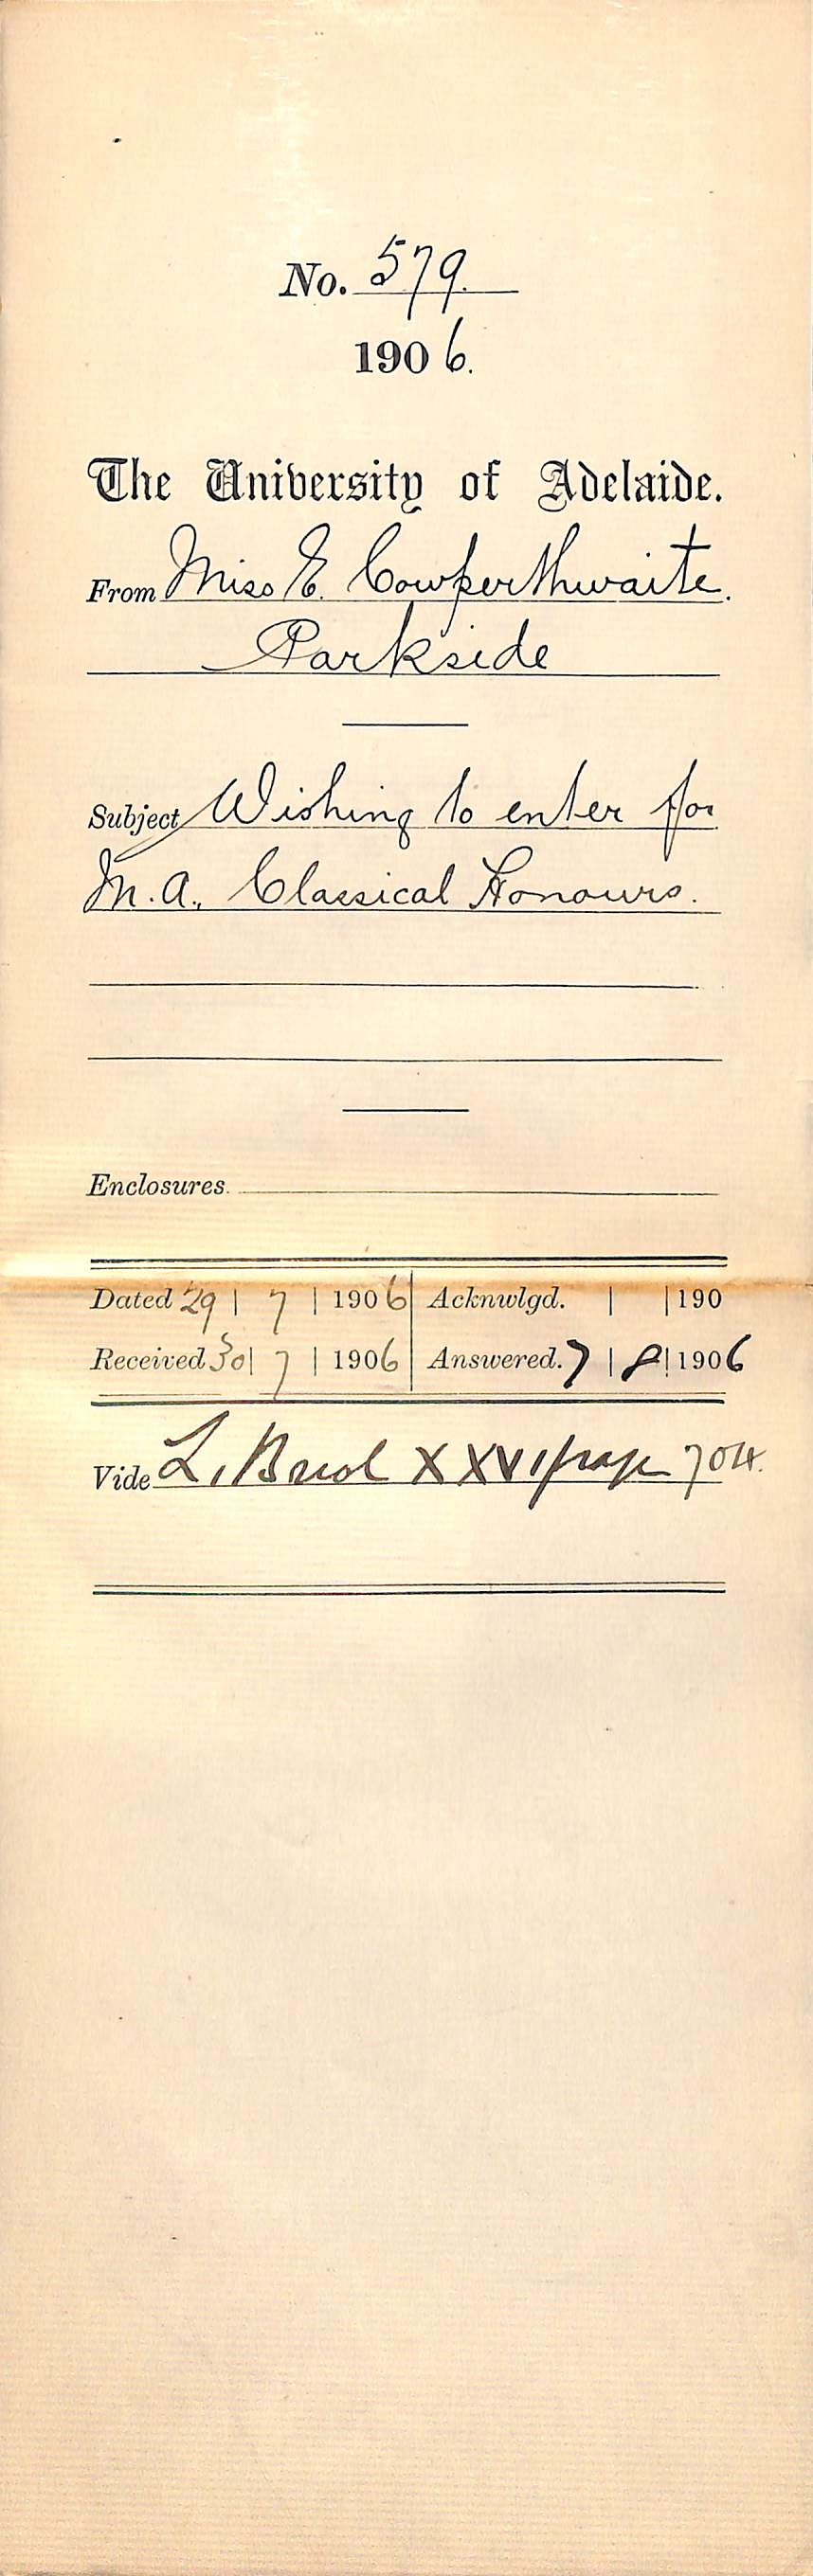 No. 579.
1906.
The University of Adelaide.
From Miss E. Cowperthwaite.
Parkside
Subject Wishing to enter for
M.A., Classical Honours.
Enclosures.
Dated 29 | 7 | 1906 Acknwlgd. | | 190
Received 30 | 7 | 1906 Answered. 7 | 8 | 1906
Vide L. XXVI page 704.